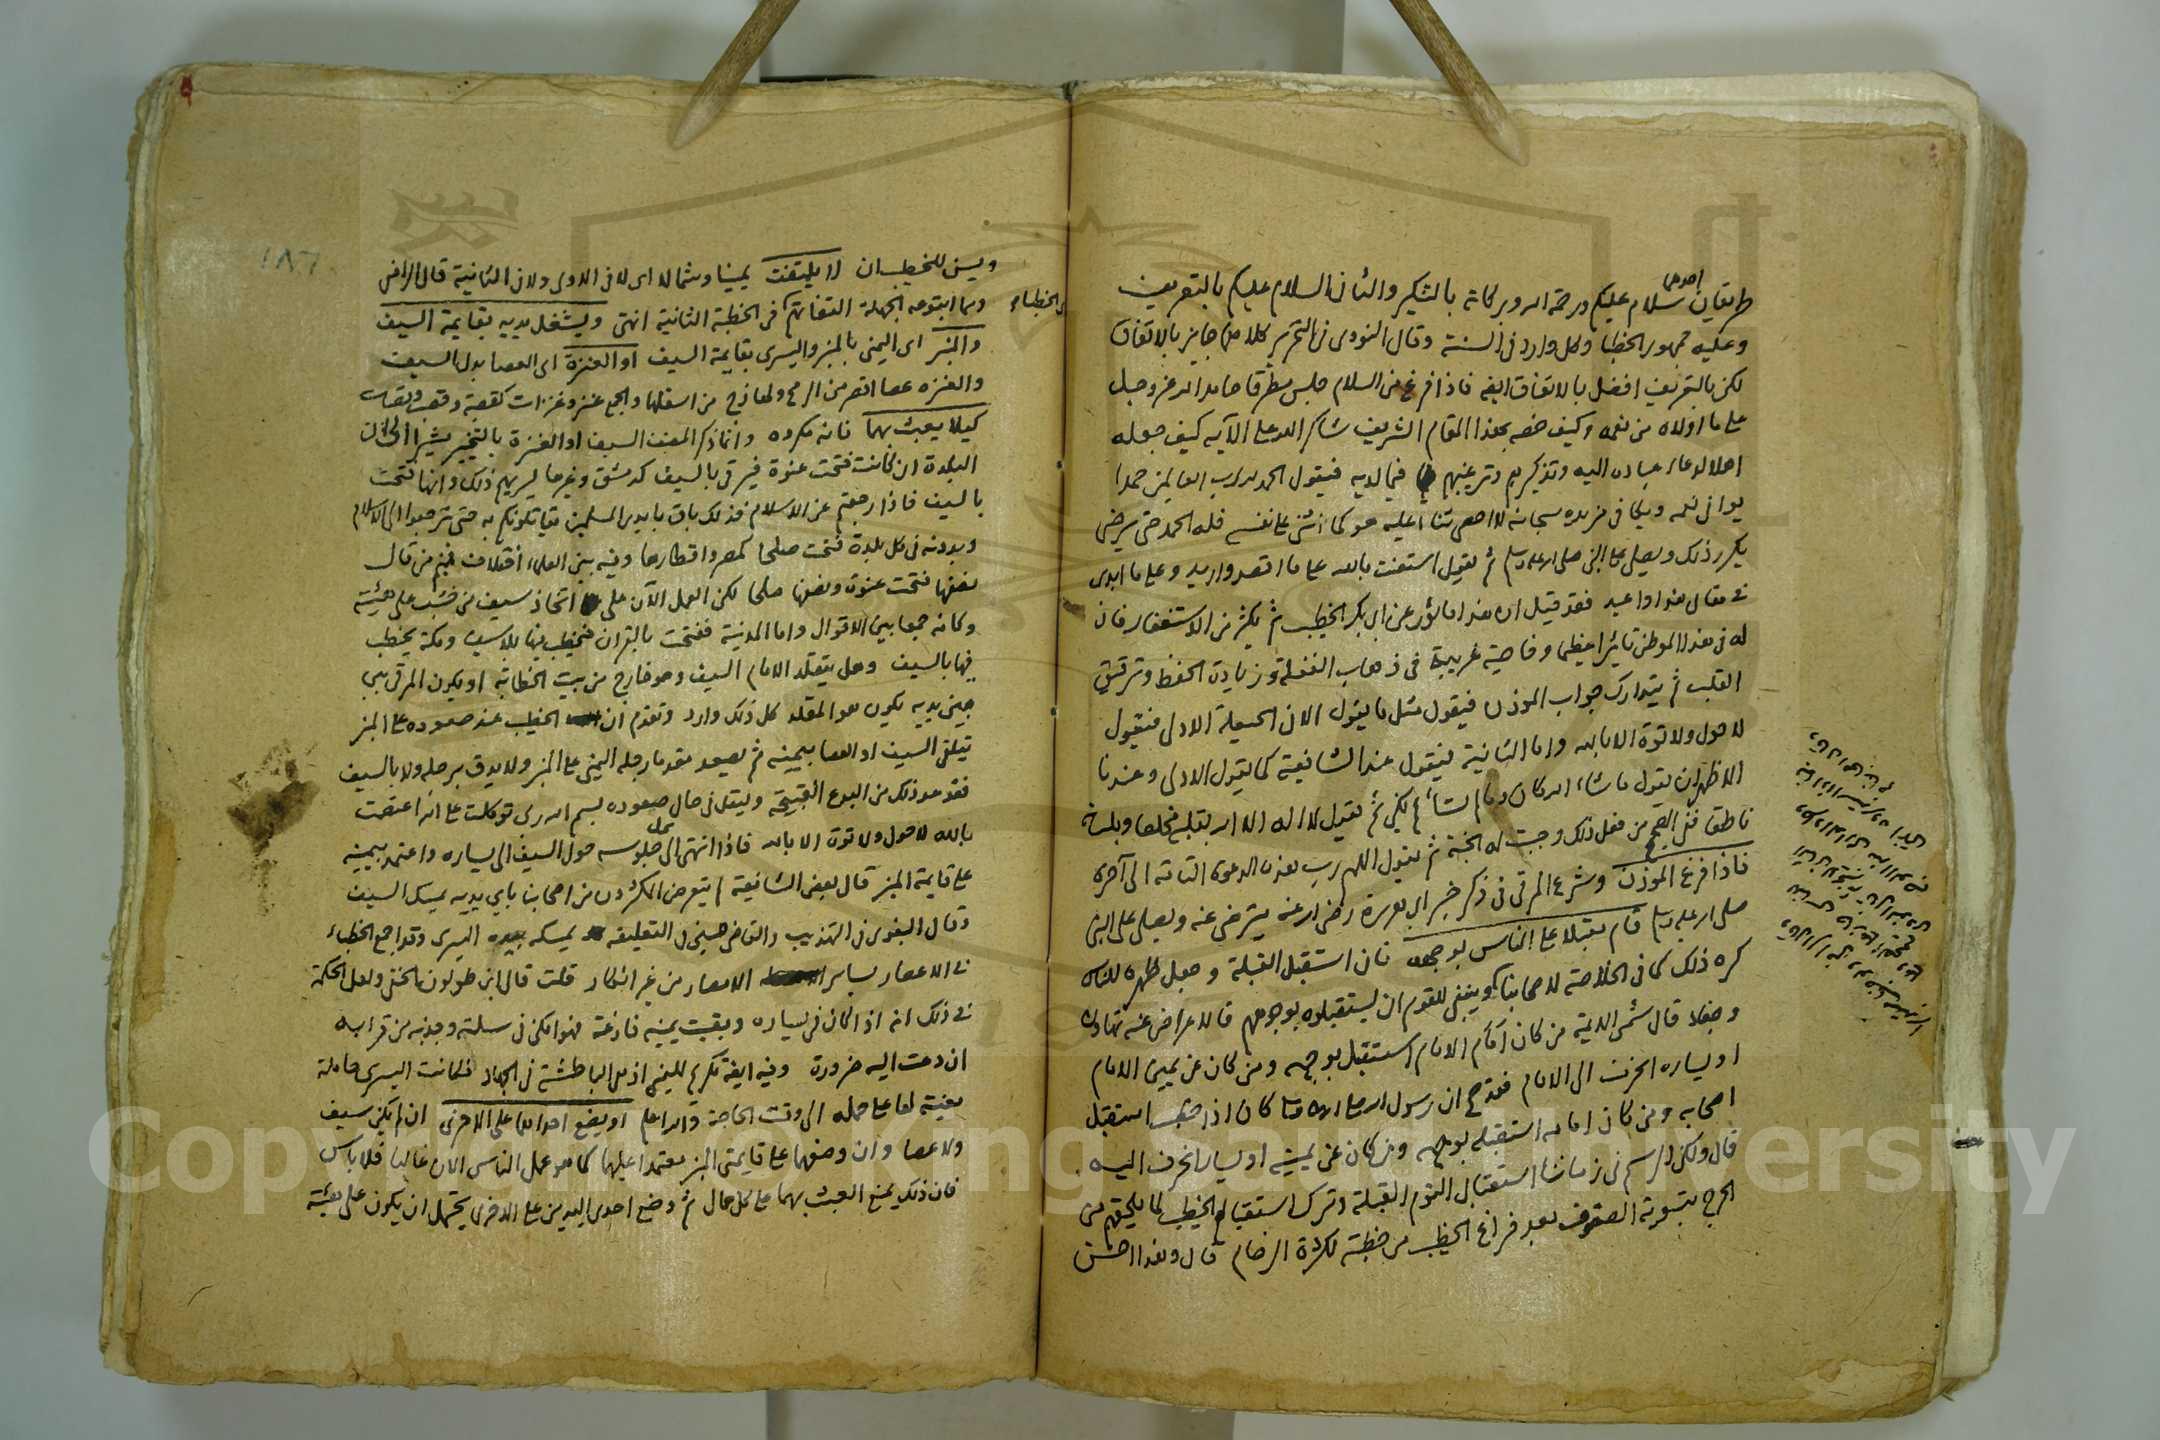 طريقان احدهما سلام عليكم ورحمة الله وبركاته بالتنكير والثاني السلام عليكم بالتعريف
وعليه جمهور الخطبا وكل وارد في السنة وقال النووي في التحرير كلاهما جايز بالاتفاق
لكن بالتعريف افضل بالاتفاق ايضا فاذا فرغ من السلام جلس مطرقا حامدا لله عز وجل
على ما اولاه من نعمه وكيف خصه بهذا المقام الشريف شاكرا لله على الآيه كيف جعله
اهلا لدعاء عباده اليه وتذكيرهم وترغيبهم فيما لديه فيقول الحمد لله رب العالمين حمدا
يوافي نعمه ويكافي مزيده سبحانه لا احصي ثناء عليه هو كما اثنى على نفسه فله الحمد حتى يرضى
يكرر ذلك ويصلي على النبي صلى الله عليه وسلم ثم يقول استعنت بالله على ما اقصد واريد وعلى ما ابدى
في مقالي هذا واعيد فقد قيل ان هذا ماثور عن ابي بكر الخطيب ثم يكثر من الاستغفار فان
له في هذا الموطن تاثيرا عظيما وخاصية غريبة في ذهاب الغفلة وزيادة الحفظ وترقيق
القلب ثم يتدارك جواب الموذن فيقول مثل ما يقول الا في الحيعلة الاولى فيقول
لا حول ولا قوة الا بالله واما الثانية فيقول عند الشافعية كما يقول الاولى وعندنا
الاظهر ان يقول ما شاء الله كان وما لم يشأ لم يكن ثم يقول لا اله الا الله بقلبه مخلصا وبلسانه
ناطقا ففي الصحيح من فعل ذلك وجبت له الجنة ثم يقول اللهم رب هذه الدعوة التامة الى آخره
فاذا فرغ الموذن وشرع المرقي في ذكر خبر ابي هريرة رضي الله عنه يترضى عنه ويصلي على النبي
صلى الله عليه وسلم قام مقبلا على الناس بوجهه فان استقبل القبلة وجعل ظهره للناس
كره ذلك كما في الخلاصة لاصحابنا وينبغي للقوم ان يستقبلوه بوجوههم فالاعراض عنه تهاون
وجفاء قال شمس الايمة من كان أمام الامام استقبل بوجهه ومن كان عن يمين الامام
او يساره انحرف الى الامام فقد صح ان رسول الله صلى الله عليه وسلم كان اذا خطب استقبل
اصحابه ومن كان امامه استقبله بوجهه ومن كان عن يمينه او يساره انحرف اليه
قال ولكن الرسم في زماننا استقبال القوم القبلة وترك استقبالهم الخطيب لما يلحقهم من
الحرج بتسوية الصفوف بعد فراغ الخطيب من خطبته لكثرة الزحام قال وهذا احسن
ويسن للخطيب ان لا يلتفت يمينا وشمالا اي لا في الاولى ولا في الثانية قال الرافعي
ومما ابتدعه الجهلة التفاتهم في الخطبة الثانية انتهى ويشغل يديه بقايمة السيف
والمنبر اى اليمنى بالمنبر واليسرى بقايمة السيف او العنزة اى العصا بدل السيف
والعنزه عصا اقصر من الرمح ولها زج من اسفلها والجمع عنز وعنزات كقصبة وقصب وقصبات
كيلا يعبث بهما فانه مكروه وانما ذكر المصنف السيف او العنزة بالتخيير مشيرا الى ان
البلدة ان كانت فتحت عنوة فيرقى بالسيف كدمشق وغيرها ليريهم ذلك وانها فتحت
بالسيف فاذا رجعتم عن الاسلام فذلك باق بايدي المسلمين يقاتلونكم به حتى ترجعوا الى الاسلام
وبدونه في كل بلدة فتحت صلحا كمصر واقطارها وفيه بين العلماء اختلاف فمنهم من قال
بعضها فتحت عنوة وبعضها صلحا لكن العمل الآن على اتخاذ سيف من خشب على هيئته
وكانه جمعا بين الاقوال واما المدينة ففتحت بالقران فيخطب فيها بلا سيف ومكة يخطب
فيها بالسيف وهل يتقلد الامام السيف وهو خارج من بيت الخطابة او يكون المرقي بين
يديه يكون هو المقلد كل ذلك وارد وتقدم ان الخطيب عند صعوده على المنبر
يتلقى السيف او العصا بيمينه ثم يصعد مقدما رجله اليمنى على المنبر ولا يدق برجله ولا بالسيف
فقد عد ذلك من البدع القبيحة وليقل في حال صعوده بسم الله ربي توكلت على الله اعتصمت
بالله لا حول ولا قوة الا بالله فاذا انتهى الى محل جلوسه حول السيف الى يساره واعتمد بيمينه
على قايمة المنبر قال بعض الشافعية لم يتعرض الاكثرون من اصحابنا باي يديه يمسك السيف
وقال البغوي في التهذيب والقاضي حسين في التعليقة يمسكه بيده اليسرى وقد اجمع الخطباء
في الاعصار بساير الامصار من غير انكار قلت قال ابن طولون الحنفي ولعل الحكمة
في ذلك انه اذا كان في يساره وبقيت يمينه فارغة فهو امكن في سلته وجذبه من قرابه
ان دعت اليه ضرورة وفيه ايضا تكريم لليمنى اذ هي الباطشة في الجهاد فكانت اليسرى حاملة
معينة لها على حمله الى وقت الحاجة والله اعلم او يضع احداهما على الاخرى ان لم يكن سيف
ولا عصا وان وضعهما على قايمتي المنبر معتمدا عليهما كما هو عمل الناس الآن غالبا فلا باس
فان ذلك يمنع العبث بهما على كل حال ثم وضع احدى اليدين على الاخرى يحتمل ان يكون على هيئة
١٨٦